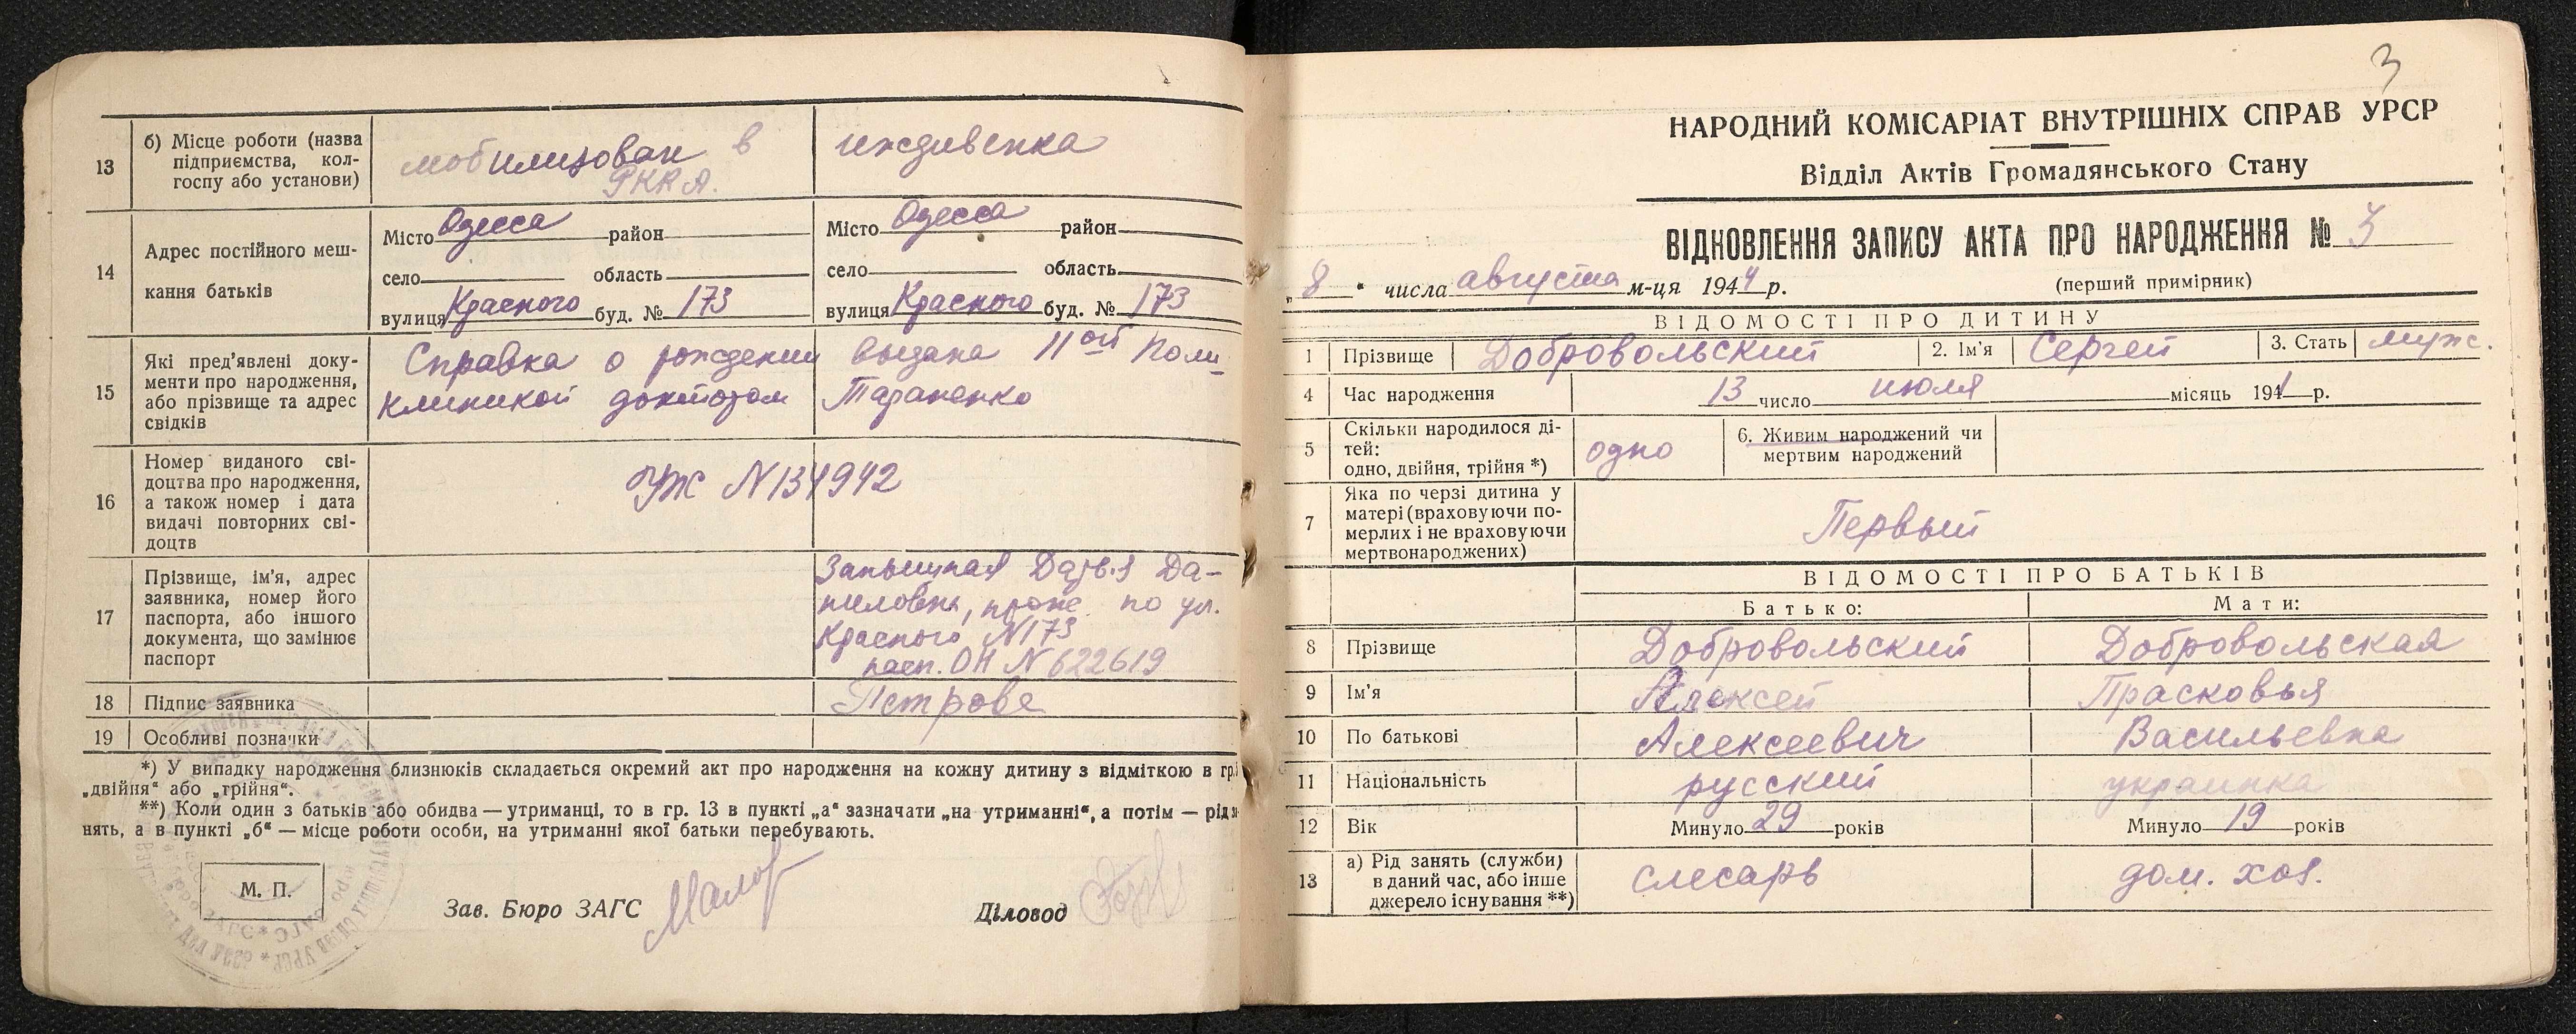 13
б) Місце роботи (назва
підприємства, кол-
госпу або установи)
мобилизован в
РККА.
иждивенка
14
Адрес постійного меш-
кання батьків
Місто Одесса район
село область
вулиця Красного буд. № 173
Місто Одесса район
село область
вулиця Красного буд. № 173
15
Які пред'явлені доку-
менти про народження,
або прізвище та адрес
свідків
Справка о рождении выдана 11ой Поли-
клиникой доктором Тараненко
16
Номер виданого сві-
доцтва про народження,
а також номер і дата
видачі повторних сві-
доцтв
УЖ N134942
17
Прізвище, ім'я, адрес
заявника, номер його
паспорта, або іншого
документа, що замінює
паспорт
Да-
ниловна, прож. по ул.
Красного N173
пасп. ОН N 622619
18
Підпис заявника
Петрова
19
Особливі позначки
*) У випадку народження близнюків складається окремий акт про народження на кожну дитину з відміткою в гр.
„двійня“ або „трійня“.
**) Коли один з батьків або обидва — утриманці, то в гр. 13 в пункті „а“ зазначати „на утриманні“, а потім — рід
нять, а в пункті „б“ — місце роботи особи, на утриманні якої батьки перебувають.
М. П.
Зав. Бюро ЗАГС
Діловод
3
НАРОДНИЙ КОМІСАРІАТ ВНУТРІШНІХ СПРАВ УРСР
Відділ Актів Громадянського Стану
ВІДНОВЛЕННЯ ЗАПИСУ АКТА ПРО НАРОДЖЕННЯ № 3
„8“ числа августа м-ця 1944 р.
(перший примірник)
ВІДОМОСТІ ПРО ДИТИНУ
1 Прізвище Добровольский 2. Ім'я Сергей 3. Стать муж.
4 Час народження 13 число июля місяць 1941 р.
5
Скільки народилося ді-
тей:
одно, двійня, трійня *)
одно
6. Живим народжений чи
мертвим народжений
7
Яка по черзі дитина у
матері (враховуючи по-
мерлих і не враховуючи
мертвонароджених)
Первый
ВІДОМОСТІ ПРО БАТЬКІВ
Батько: Мати:
8 Прізвище Добровольский Добровольская
9 Ім'я Алексей Прасковья
10 По батькові Алексеевич Васильевна
11 Національність русский украинка
12 Вік Минуло 29 років Минуло 19 років
13
а) Рід занять (служби)
в даний час, або інше
джерело існування **)
слесарь
дом. хоз.